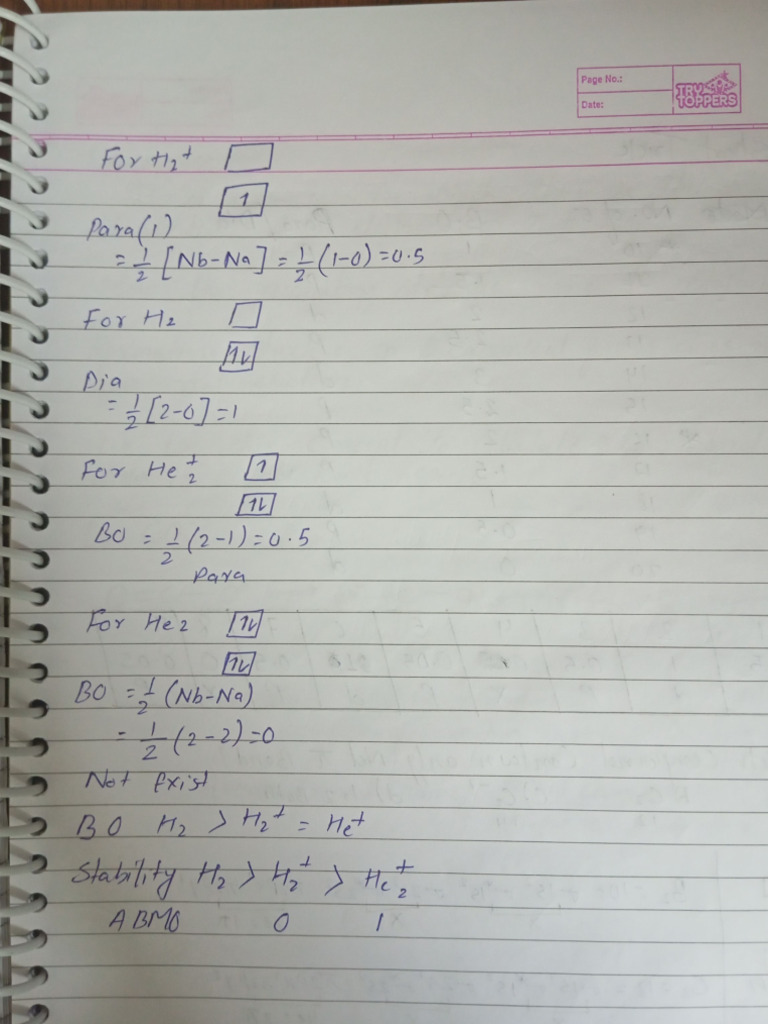 Page No.:
Date:
TRY TOPPERS
For H₂⁺
1
Para(1)
= 1/2 [Nb-Na] = 1/2 (1-0) = 0.5
For H₂
1L
Dia
= 1/2 [2-0] = 1
For He₂⁺ 1
1L
BO = 1/2 (2-1) = 0.5
Para
For He2 1L
1L
BO = 1/2 (Nb-Na)
= 1/2 (2-2) = 0
Not Exist
BO H₂ > H₂⁺ = He⁺
Stability H₂ > H₂⁺ > He₂⁺
ABMO 0 1